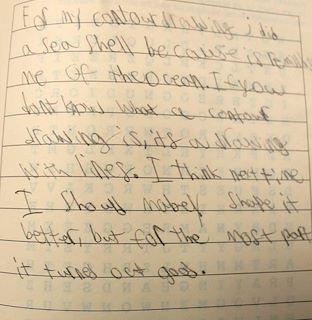 For my contour drawing i did
a sea shell because is remind
me of the ocean. If you
dont know what a contour
drawing is, its a drawing
with lines. I think next time
I should shape it
better, but for the most part
it turned out good.